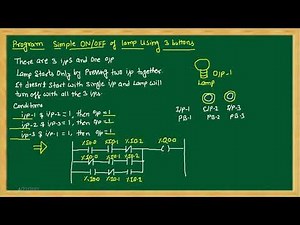 Program Simple ON/OFF of lamp Using 3 buttons
There are 3 i/ps and one o/p
Lamp Starts Only by Pressing two i/p together.
It doesn't Start with single i/p and Lamp will
turn off with all the 3 i/ps.
Conditions
i/p-1 & i/p-2 = 1, then o/p = 1
i/p-2 & i/p-3 = 1, then o/p = 1
i/p-3 & i/p-1 = 1, then o/p = 1
O/P-1
Lamp
I/P-1 I/P-2 I/P-3
PB-1 PB-2 PB-3
%I0.0 %I0.1 %I0.2 %Q0.0
%I0.0 %I0.1 %I0.2
%I0.0 %I0.1 %I0.2